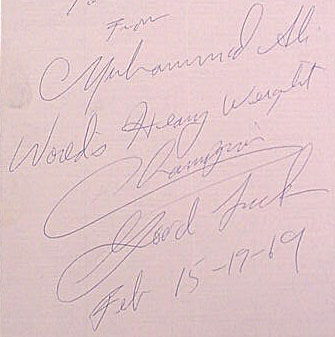 From
Muhammad Ali
World's Heavy Weight
Champion
Good Luck
Feb 15-19-69